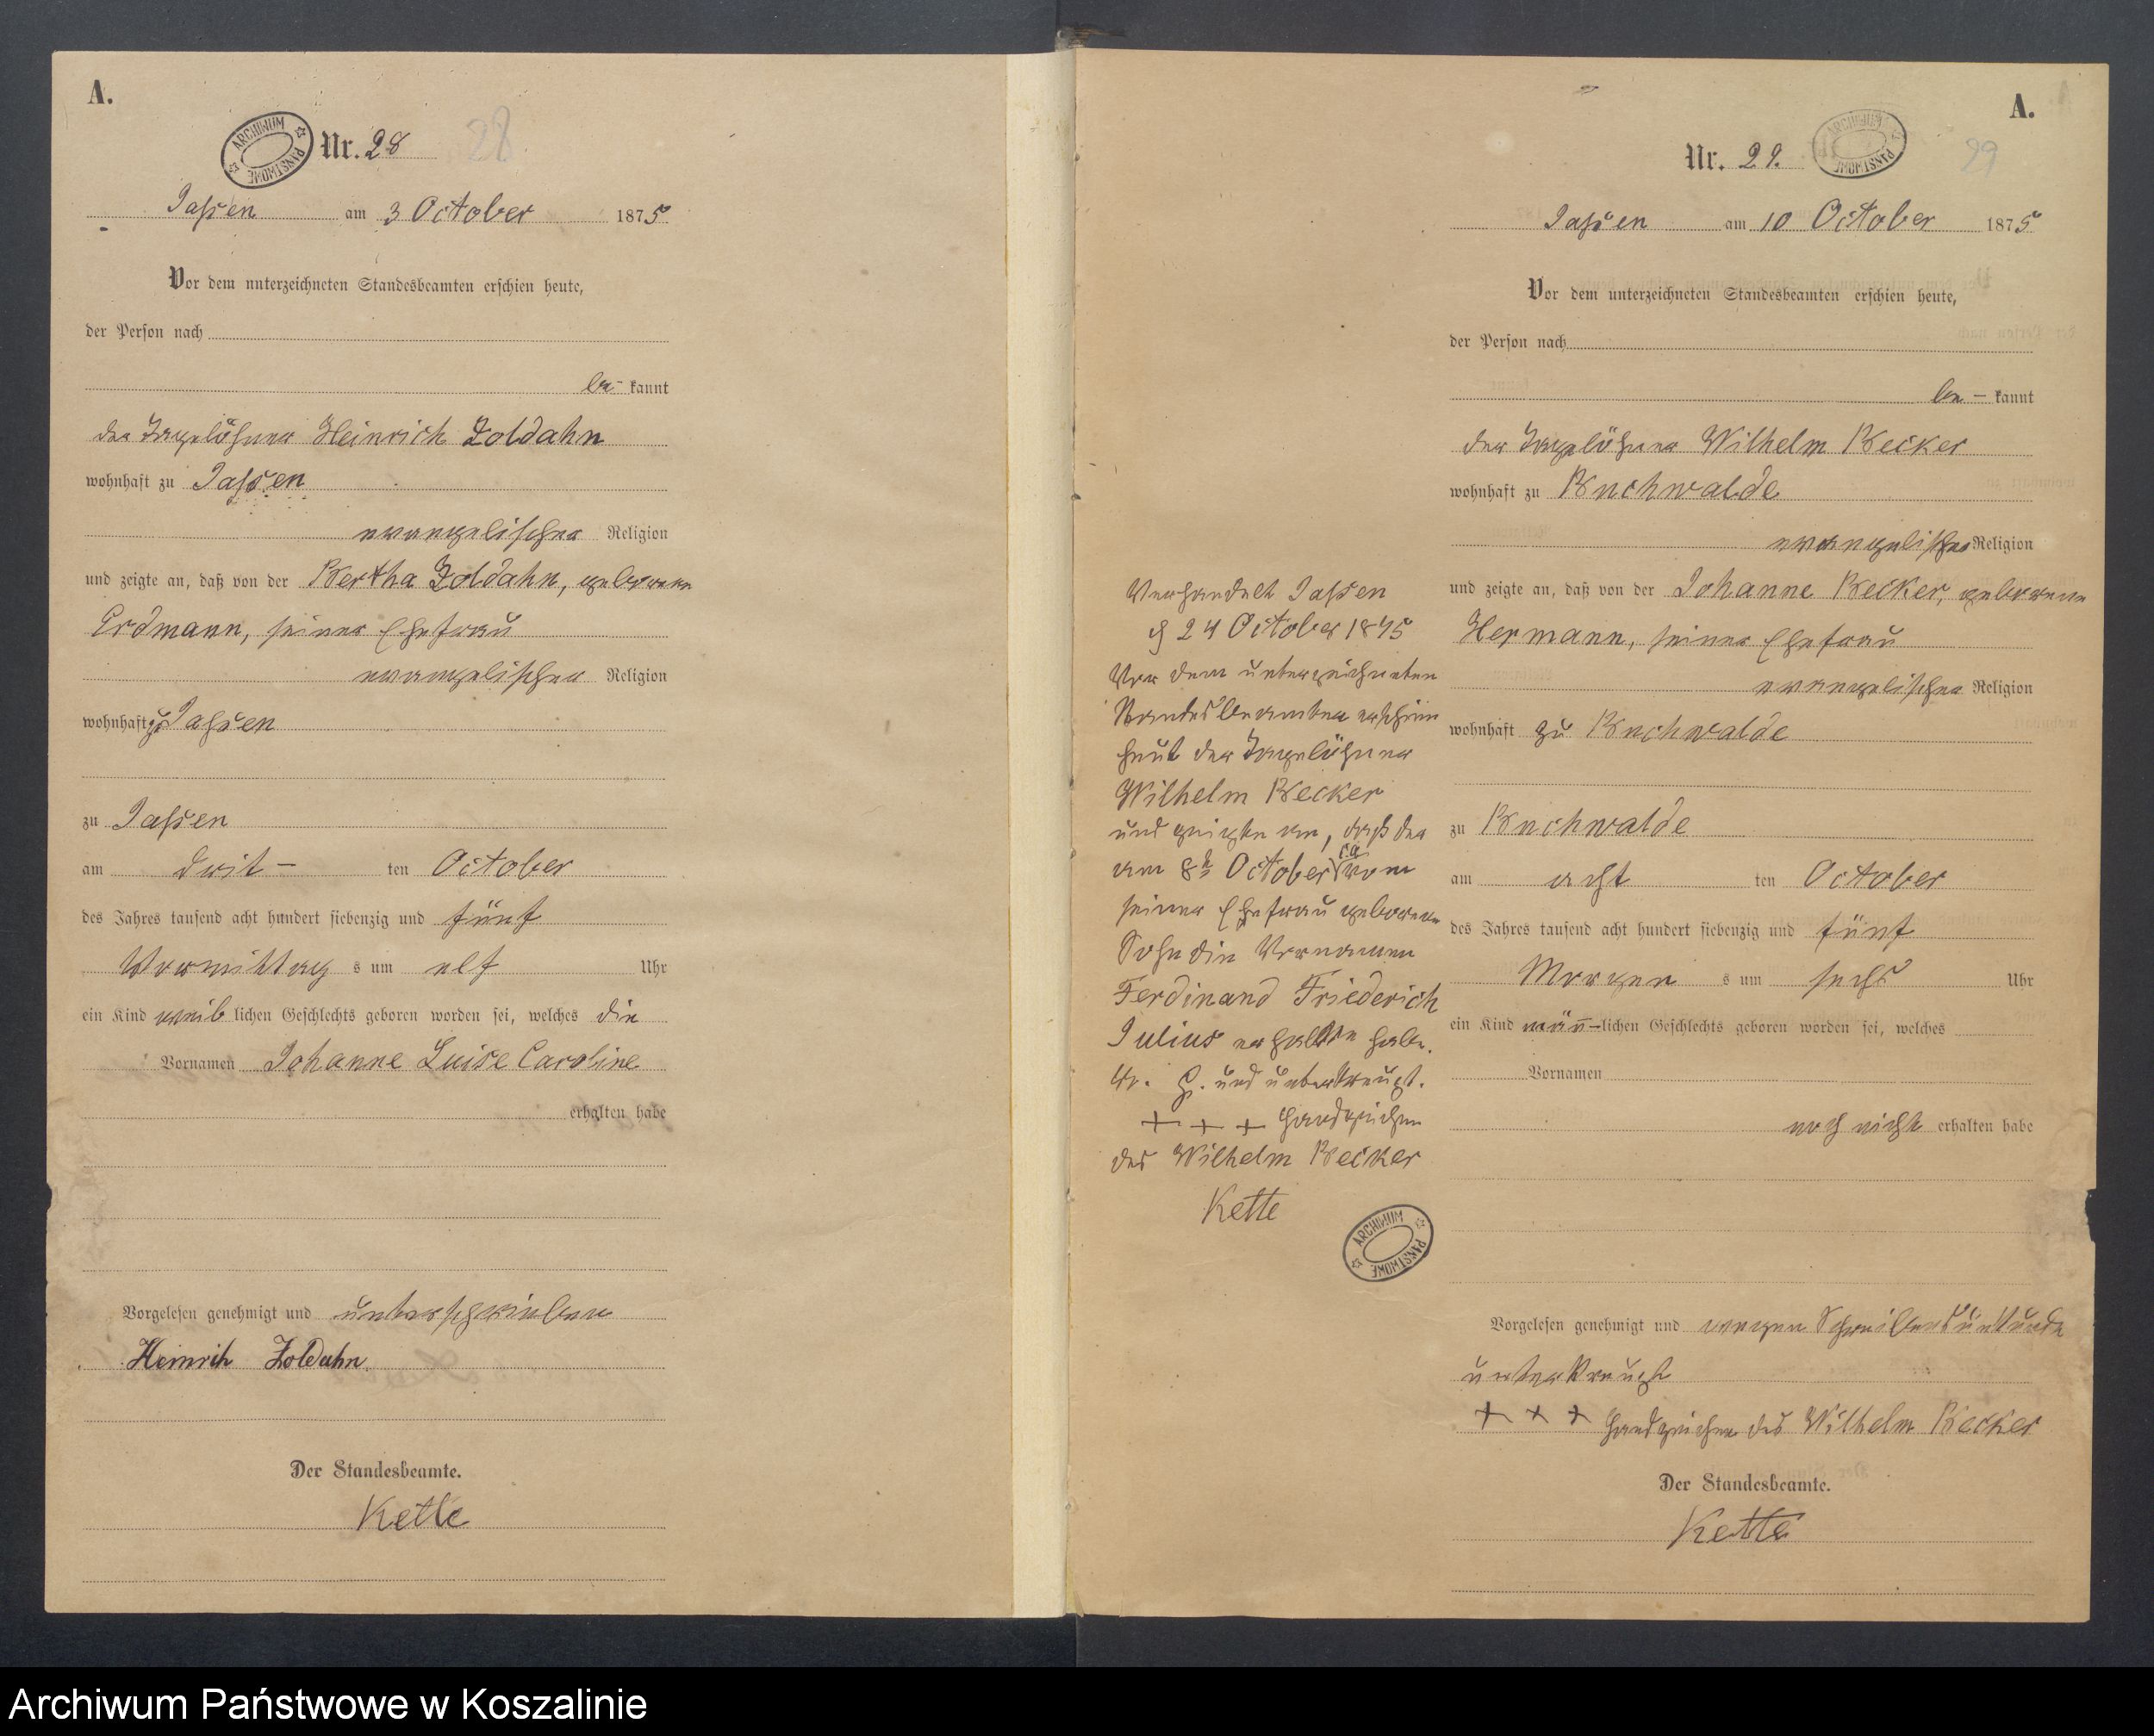 A.
ARCHIWUM PAŃSTWOWE
Nr. 28 28
Jassen am 3 October 1875
Vor dem unterzeichneten Standesbeamten erschien heute,
der Person nach
be- kannt
der Tagelöhner Heinrich Zoldahn
wohnhaft zu Jassen
evangelischer Religion
und zeigte an, daß von der Bertha Zoldahn, geborene
Erdmann, seiner Ehefrau
evangelischer Religion
wohnhaft zu Jassen
zu Jassen
am drit- ten October
des Jahres tausend acht hundert siebenzig und fünf
Vormittag s um elf Uhr
ein Kind weib lichen Geschlechts geboren worden sei, welches die
Vornamen Johanne Luise Caroline
erhalten habe
Vorgelesen genehmigt und unterschrieben
Heinrich Zoldahn
Der Standesbeamte.
Kette
A.
Nr. 29. 29
ARCHIWUM PAŃSTWOWE
Jassen am 10 October 1875
Vor dem unterzeichneten Standesbeamten erschien heute,
der Person nach
be - kannt
der Tagelöhner Wilhelm Becker
wohnhaft zu Buchwalde
evangelischer Religion
und zeigte an, daß von der Johanne Becker, geborene
Hermann, seiner Ehefrau
evangelischer Religion
wohnhaft zu Buchwalde
zu Buchwalde
am acht ten October
des Jahres tausend acht hundert siebenzig und fünf
Morgen s um sechs Uhr
ein Kind männ-lichen Geschlechts geboren worden sei, welches
Vornamen
noch nicht erhalten habe
Vorgelesen genehmigt und wegen Schreibensunkunde
unterkreuzt
+ + + Handzeichen des Wilhelm Becker
Der Standesbeamte.
Kette
Verhandelt Jassen
24 October 1875
Vor dem unterzeichneten
Standesbeamten erschien
heut der Tagelöhner
Wilhelm Becker
und zeigte an, daß der
am 8t October ca von
seiner Ehefrau geborene
Sohn die Vornamen
Ferdinand Friederich
Julius erhalten habe.
V. G. und unterkreuzt.
+ + + Handzeichen
des Wilhelm Becker
Kette
ARCHIWUM PAŃSTWOWE
Archiwum Państwowe w Koszalinie